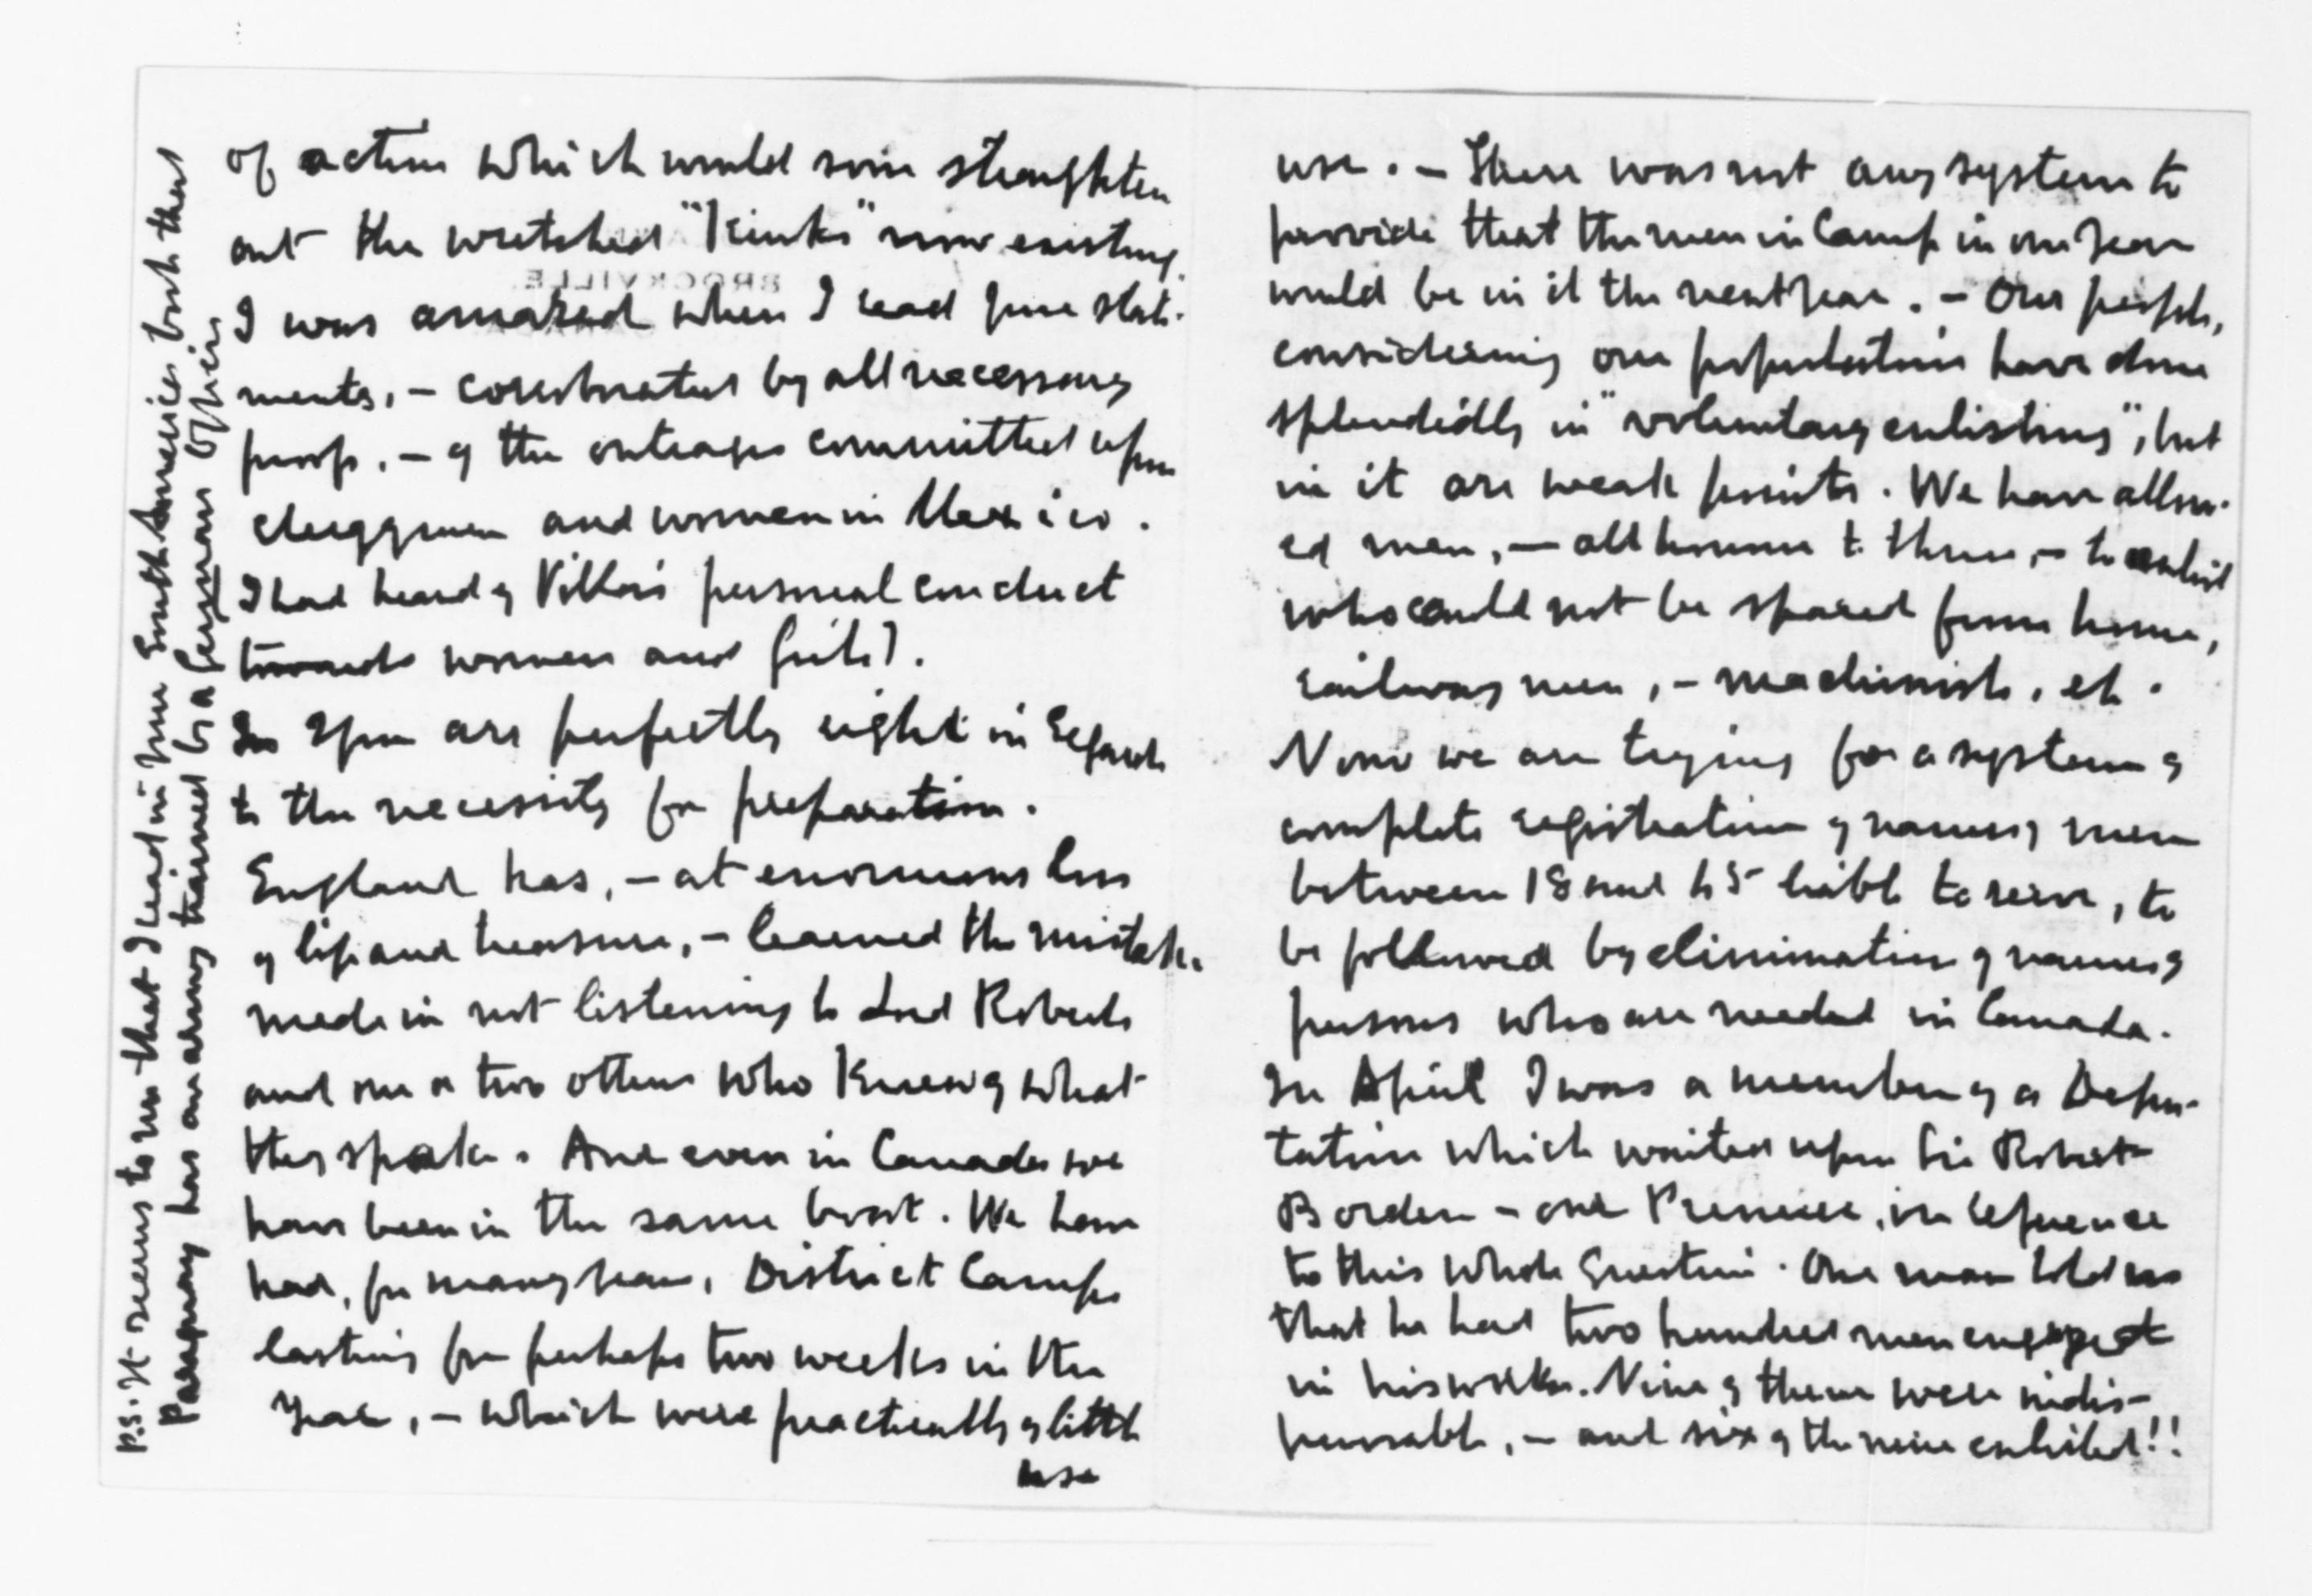 of action which would soon straighten
out the wretched "Kinks" now existing.
I was amazed when I read your state-
ments, - corroborated by all necessary
proof, - of the outrages committed upon
clergymen and women in Mexico.
I had heard of Villa's personal conduct
towards women and girls).
You are perfectly right in regard
to the necessity for preparation.
England has, - at enormous loss
of life and treasure, - learned the mistake
made in not listening to Lord Roberts
and one or two others who knew of what
they spoke. And even in Canada we
have been in the same boat. We have
had, for many years, District Camps
lasting for perhaps two weeks in the
year, - which were practically of little
use
use. - There was not any system to
provide that the men in Camp in one year
would be in it the next year. - Our people,
considering our population have done
splendidly in "voluntary enlisting", but
in it are weak points. We have allow-
ed men, - all honour to them, - to enlist
who could not be spared from home,
railway men, - machinists, etc.
Now we are trying for a system of
complete registration of names of men
between 18 and 45 liable to serve, to
be followed by elimination of names of
persons who are needed in Canada.
In April I was a member of a Depu-
tation which waited upon Sir Robert
Borden - our Premier, in reference
to this whole question. One man told us
that he had two hundred men engaged
in his works. Nine of them were indis-
pensable, - and six of the nine enlisted!!
P.S. It seems to me that I read in your South America book that
Paraguay has an army trained by a German Officer
BROCKVILLE.